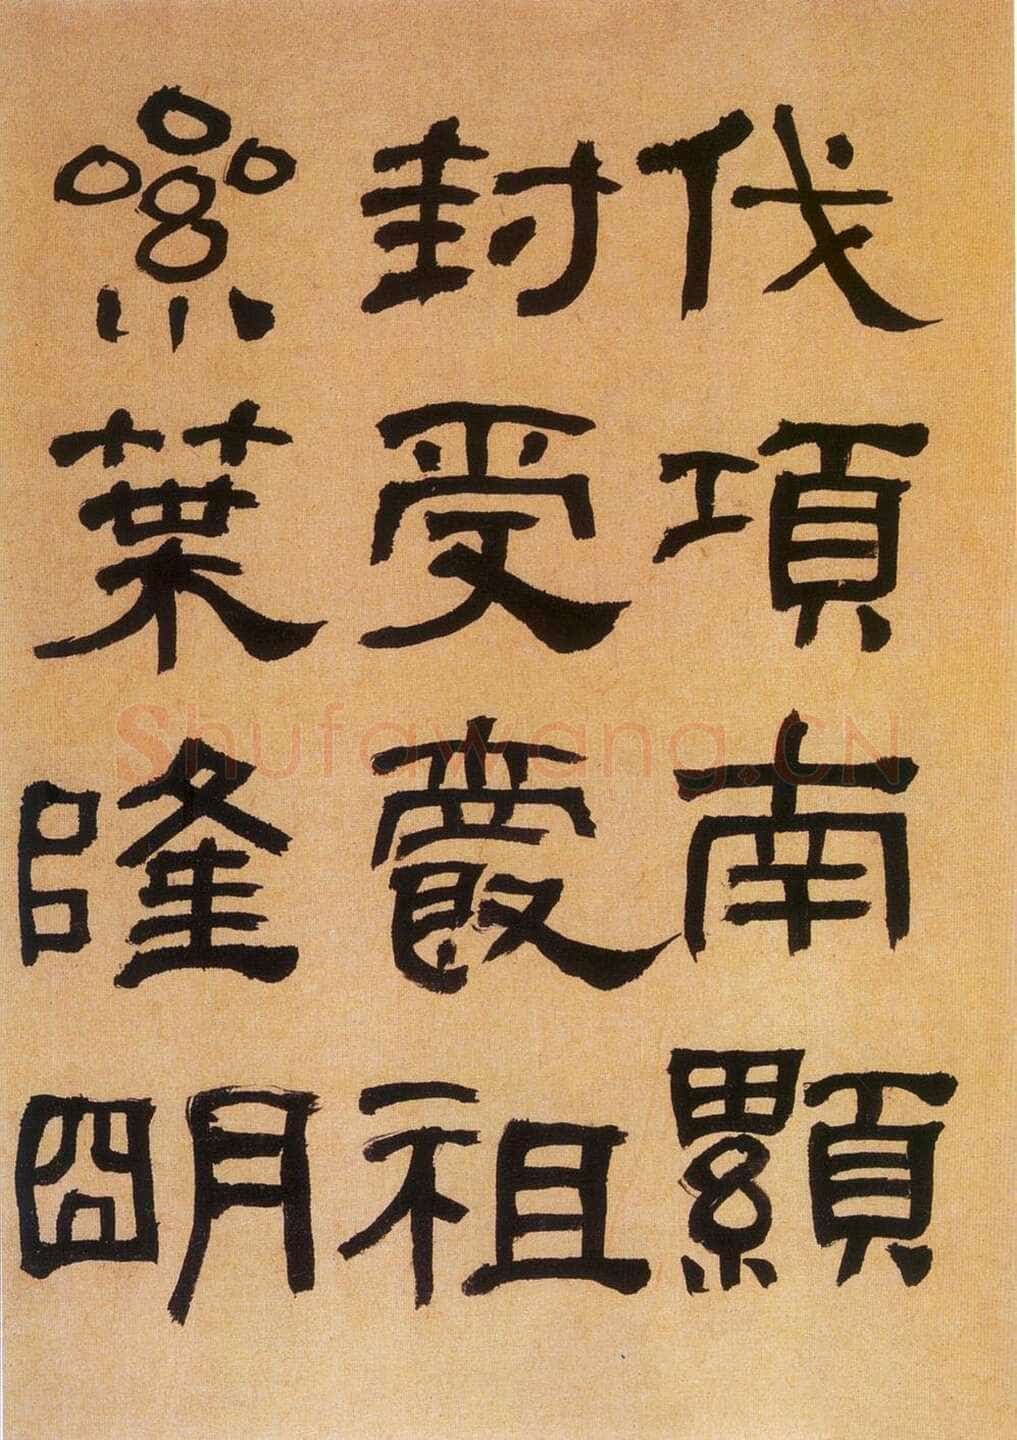 伐項南顯
封受祖
絫葉隆朙
Shufawang.CN